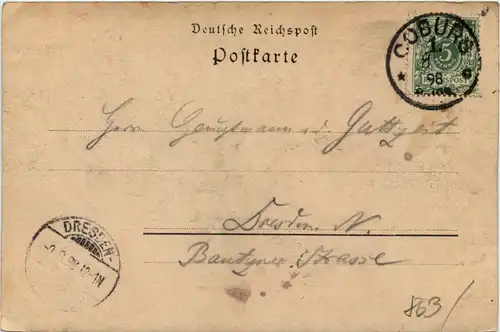 Deutsche Reichspost
Postkarte
COBURG
1.
98
5
REICHSPOST
Herrn Hauptmann a. d. Guttzeit
Dresden N.
Bautzner Strasse
DRESDEN-
12-1N
863/